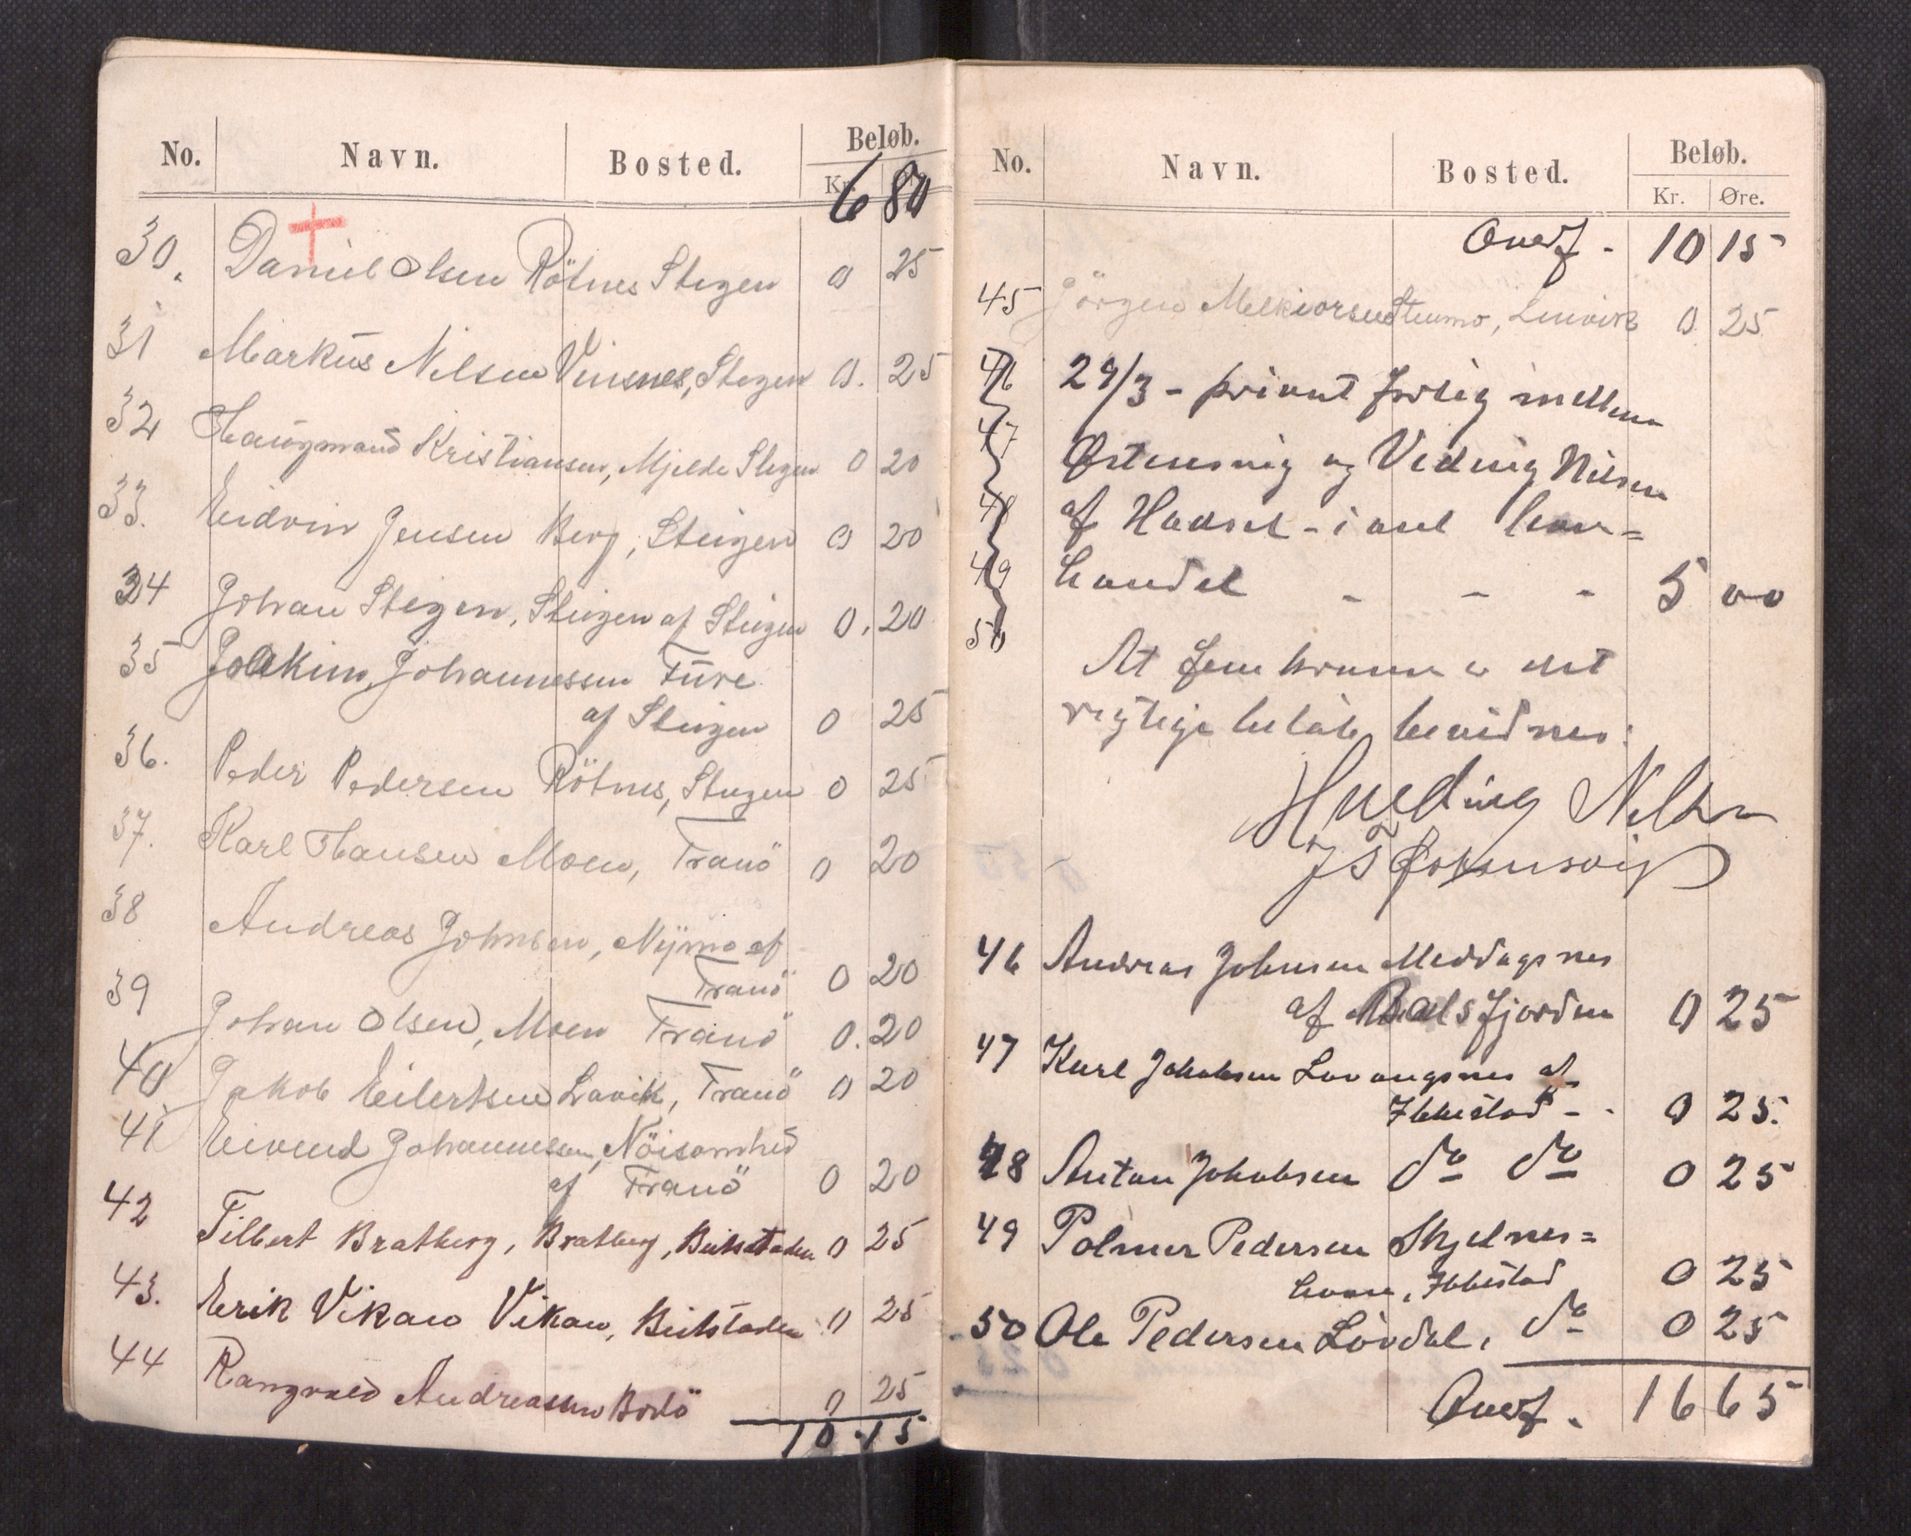 No. Navn. Bosted. Beløb.
Kr. Øre.
6 80
30. Daniel Olsen Rötnes Stegen 0 25
31 Markus Nilsen Vinsnes, Stegen 0. 25
32 Haugmand Kristiansen, Mjelde Stegen 0 20
33. Eidvin Jensen Berg, Steigen 0 20
34 Johan Stegen, Steigen af Steigen 0. 20
35 Joakim Johannessen Fure
af Steigen 0 25
36. Peder Pedersen Rötnes, Stegen 0 25
37. Karl Hansen Moen, Tranö 0 20
38 Andreas Johnsen, Nymo af
Tranö 0 20
39 Johan Olsen, Moen Tranö 0. 20
40 Jakob Eilertsen Lavik, Tranö 0 20
41 Eivind Johannessen, Nöisomhed
af Tranö 0 20
42 Tilbert Bratberg, Bratberg, Beitstaden 0 25
43. Erik Vikan Vikan, Beitstaden 0 25
44 Rangvald Andreassen Bodö 0 25
10.15
No. Navn. Bosted. Beløb.
Kr. Øre.
Overf. 10 15
45 Jörgen Melkiorsen, Lenvik 0 25
46 29/3 - privat forlig mellem
47 Østensvig og Veding Nilsen
48 af Hadsel - i anl
49 handel - - - 5 00
50
At fem kroner er det
rigtige belöb bevidnes:
Hveding Nilsen
J T Østensvig
46 Andreas Johnsen Meddagsnes
af Balsfjorden 0 25
47 Karl Jakobsen Lavangsnes af
Ibbestad - - 0 25.
48 Anton Jakobsen do do 0 25
49 Polmer Pedersen Skjelnes=
Ibbestad 0 25
50 Ole Pedersen Lövdal, do 0 25
Overf. 16 65